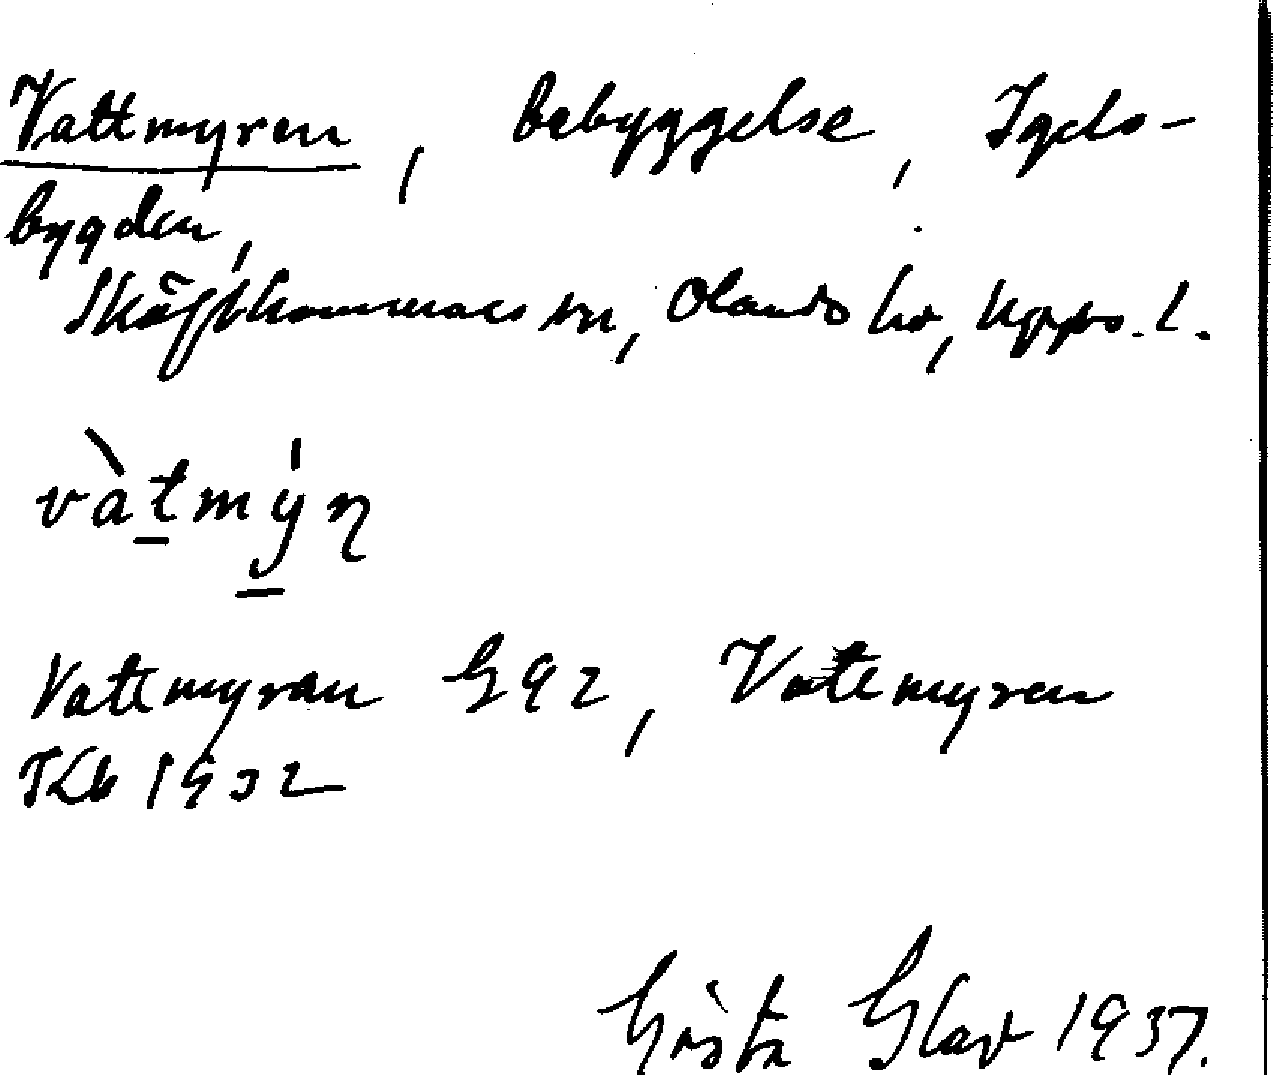 Vattmyren, bebyggelse, Igels-
bygden,
Skäfthammars sn, Olands hd, Upps. l.
vàt̲mý̲n
Vattmyran G92, Vattmyren
Tkb 1932
Gösta Glav 1937.